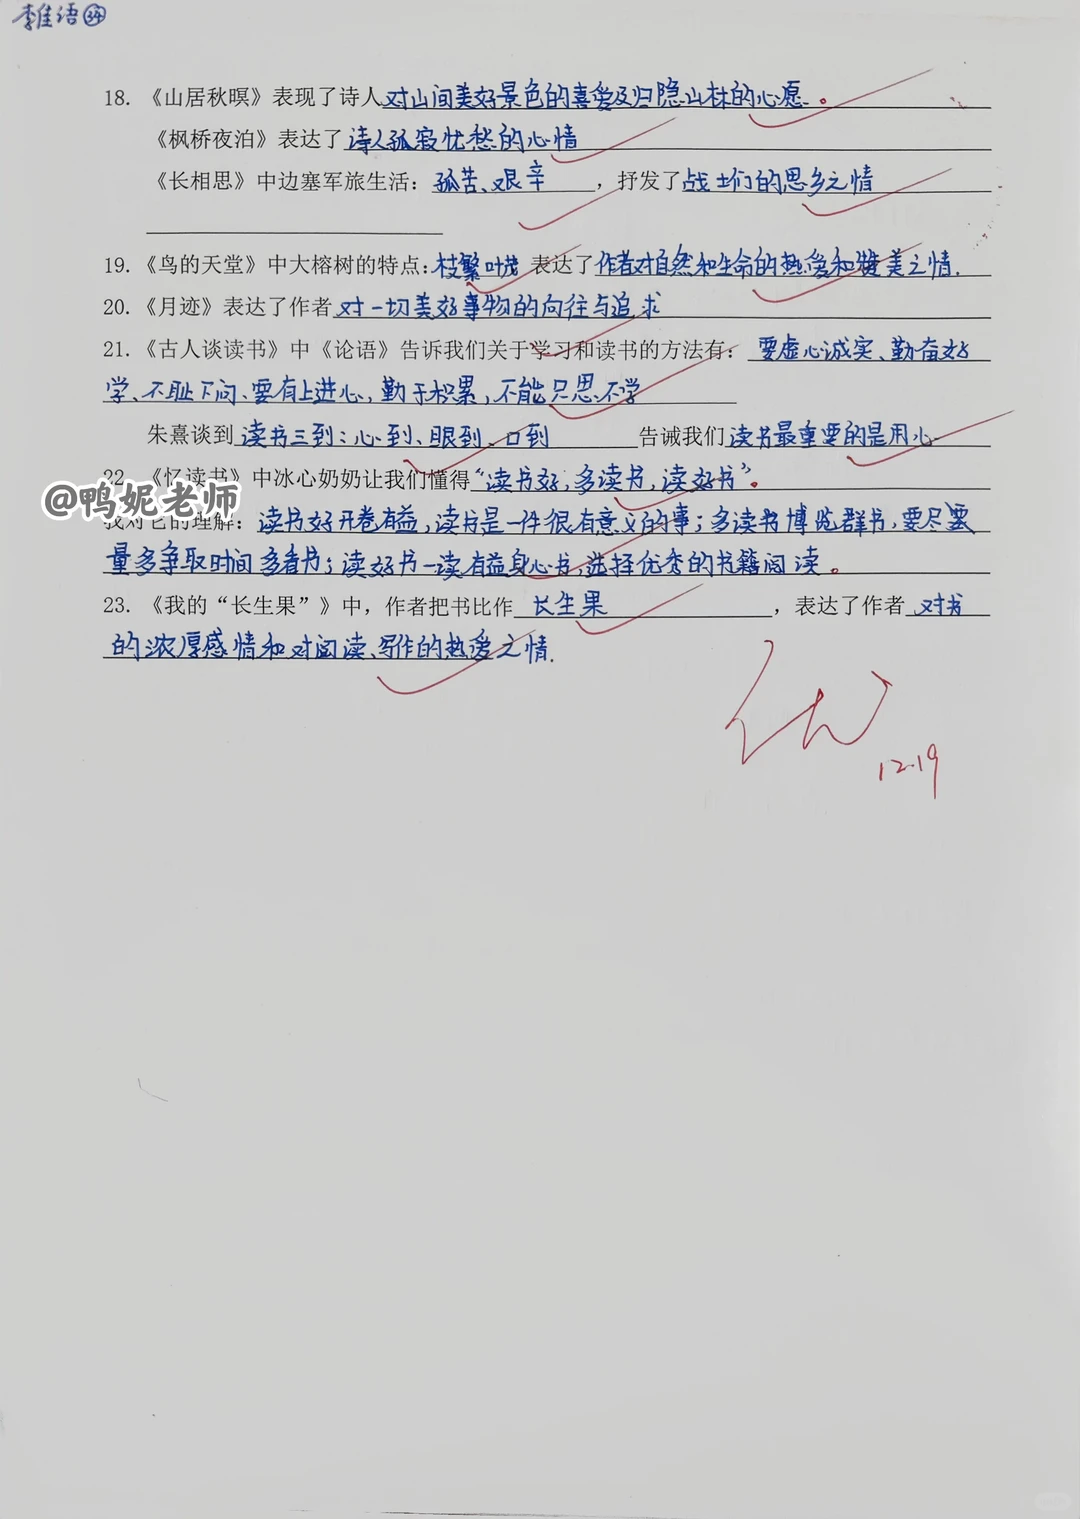 李佳语㉞
18. 《山居秋暝》表现了诗人对山间美好景色的喜爱及归隐山林的心愿。
《枫桥夜泊》表达了诗人孤寂忧愁的心情
《长相思》中边塞军旅生活：孤苦、艰辛，抒发了战士们的思乡之情
19. 《鸟的天堂》中大榕树的特点：枝繁叶茂 表达了作者对自然和生命的热爱和赞美之情.
20. 《月迹》表达了作者对一切美好事物的向往与追求
21. 《古人谈读书》中《论语》告诉我们关于学习和读书的方法有：要虚心诚实、勤奋好
学、不耻下问、要有上进心，勤于积累，不能只思不学
朱熹谈到读书三到：心到、眼到、口到 告诫我们读书最重要的是用心
22. 《忆读书》中冰心奶奶让我们懂得“读书好，多读书，读好书”。
@鸭妮老师
我对它的理解：读书好开卷有益，读书是一件很有意义的事；多读书博览群书，要尽
量多争取时间多看书；读好书一读有益身心书，选择优秀的书籍阅读。
23. 《我的“长生果”》中，作者把书比作 长生果，表达了作者 对书
的浓厚感情和对阅读、写作的热爱之情.
优
12.19